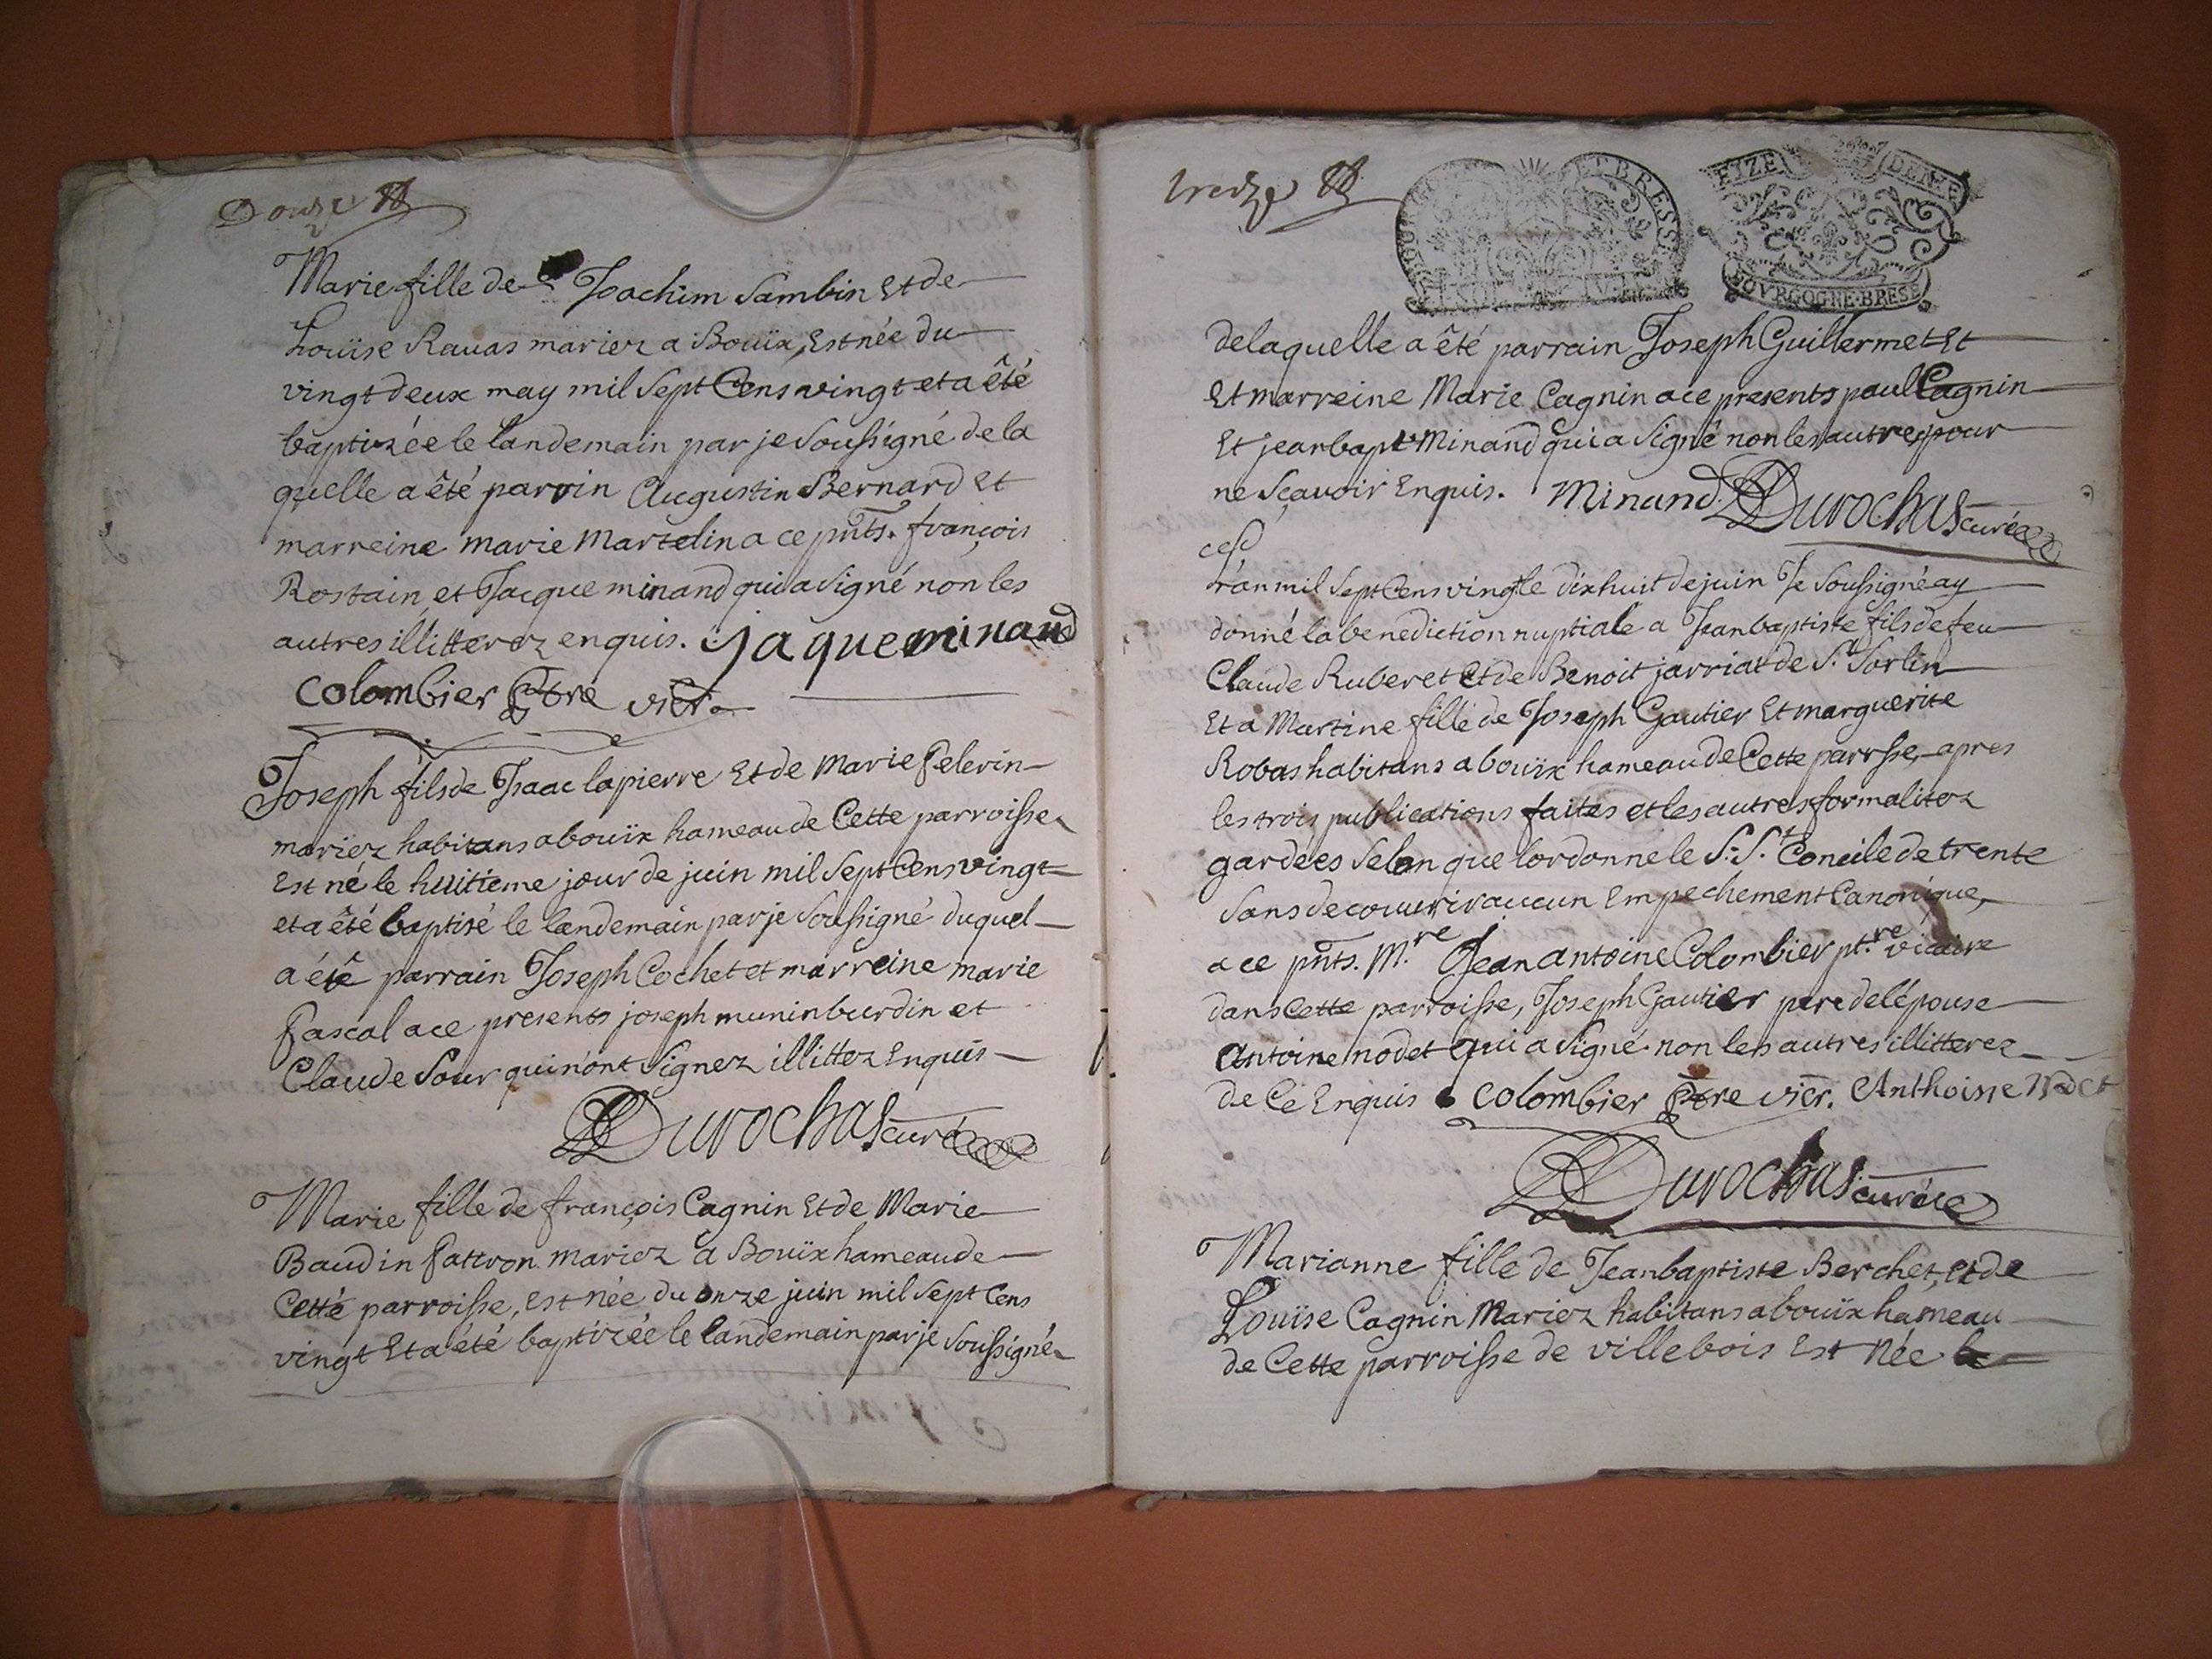 Douze
Marie fille de Joachim Sambin Et de
Loüise Ravas mariez a Bouïx, Est née du
vingt deux may mil Sept Cens vingt et a êté
baptizée le landemain par je Soussigné de la
quelle a êté parrin Augustin Bernard Et
marreine marie Martelin a ce pnts. françois
Rostain et Jacque minand qui a signé non les
autres illitterez enquis. jaqueminand
Colombier Ptre vicr.
Joseph fils de Isaac lapierre Et de Marie Pelerin
mariez habitans a bouïx hameau de Cette parroisse
Est né le huitieme jour de juin mil Sept Cens vingt
et a êté baptisé le landemain par je Soussigné duquel
a été parrain Joseph Cochet et marreine marie
Pascal a ce presents joseph munin burdin et
Claude Sour qui n'ont Signez illittez Enquis
Durochas curé
Marie fille de françois Cagnin Et de Marie
Baudin Pattron mariez a Bouïx hameau de
Cette parroisse, est née du onze juin mil Sept Cens
vingt Et a été baptizée le landemain par je Soussigné
treize
ET BRESSE
FEIZE DEN
BOVRGOGNE·BRESE
de laquelle a êté parrain Joseph Guillermet Et
Et marreine Marie Cagnin a ce presents paul Cagnin
Et jean bapt Minand qui a signé non les autres pour
ne Sçavoir Enquis. Minand Durochas curé
L'an mil Sept Cens vingt le dix huit de juin Je Soussigné ay
donné la benediction nuptiale a Jean baptiste fils de feu
Claude Ruberet Et de Benoit jarriat de St Sorlin
Et a Martine fille de Joseph Gautier Et marguerite
Robas habitans a bouïx hameau de Cette parrsse, apres
les trois publications faites et les autres formalitez
gardées Selon que lordonne le S. St Concile de trente
Sans decouvrir aucun Empechement Canonique,
a ce pnts. M.re Jean antoine Colombier pt.re vicaire
dans Cette parroisse, Joseph Gautier pere de lépouse
Antoine nodet qui a signé non les autres illitterez
de Ce Enquis Colombier Ptre vicr. Anthoine Nodet
Durochas curé
Marianne fille de Jean baptiste Berchet, et de
Loüise Cagnin Mariez habitans a bouïx hameau
de Cette parroisse de villebois Est Née le